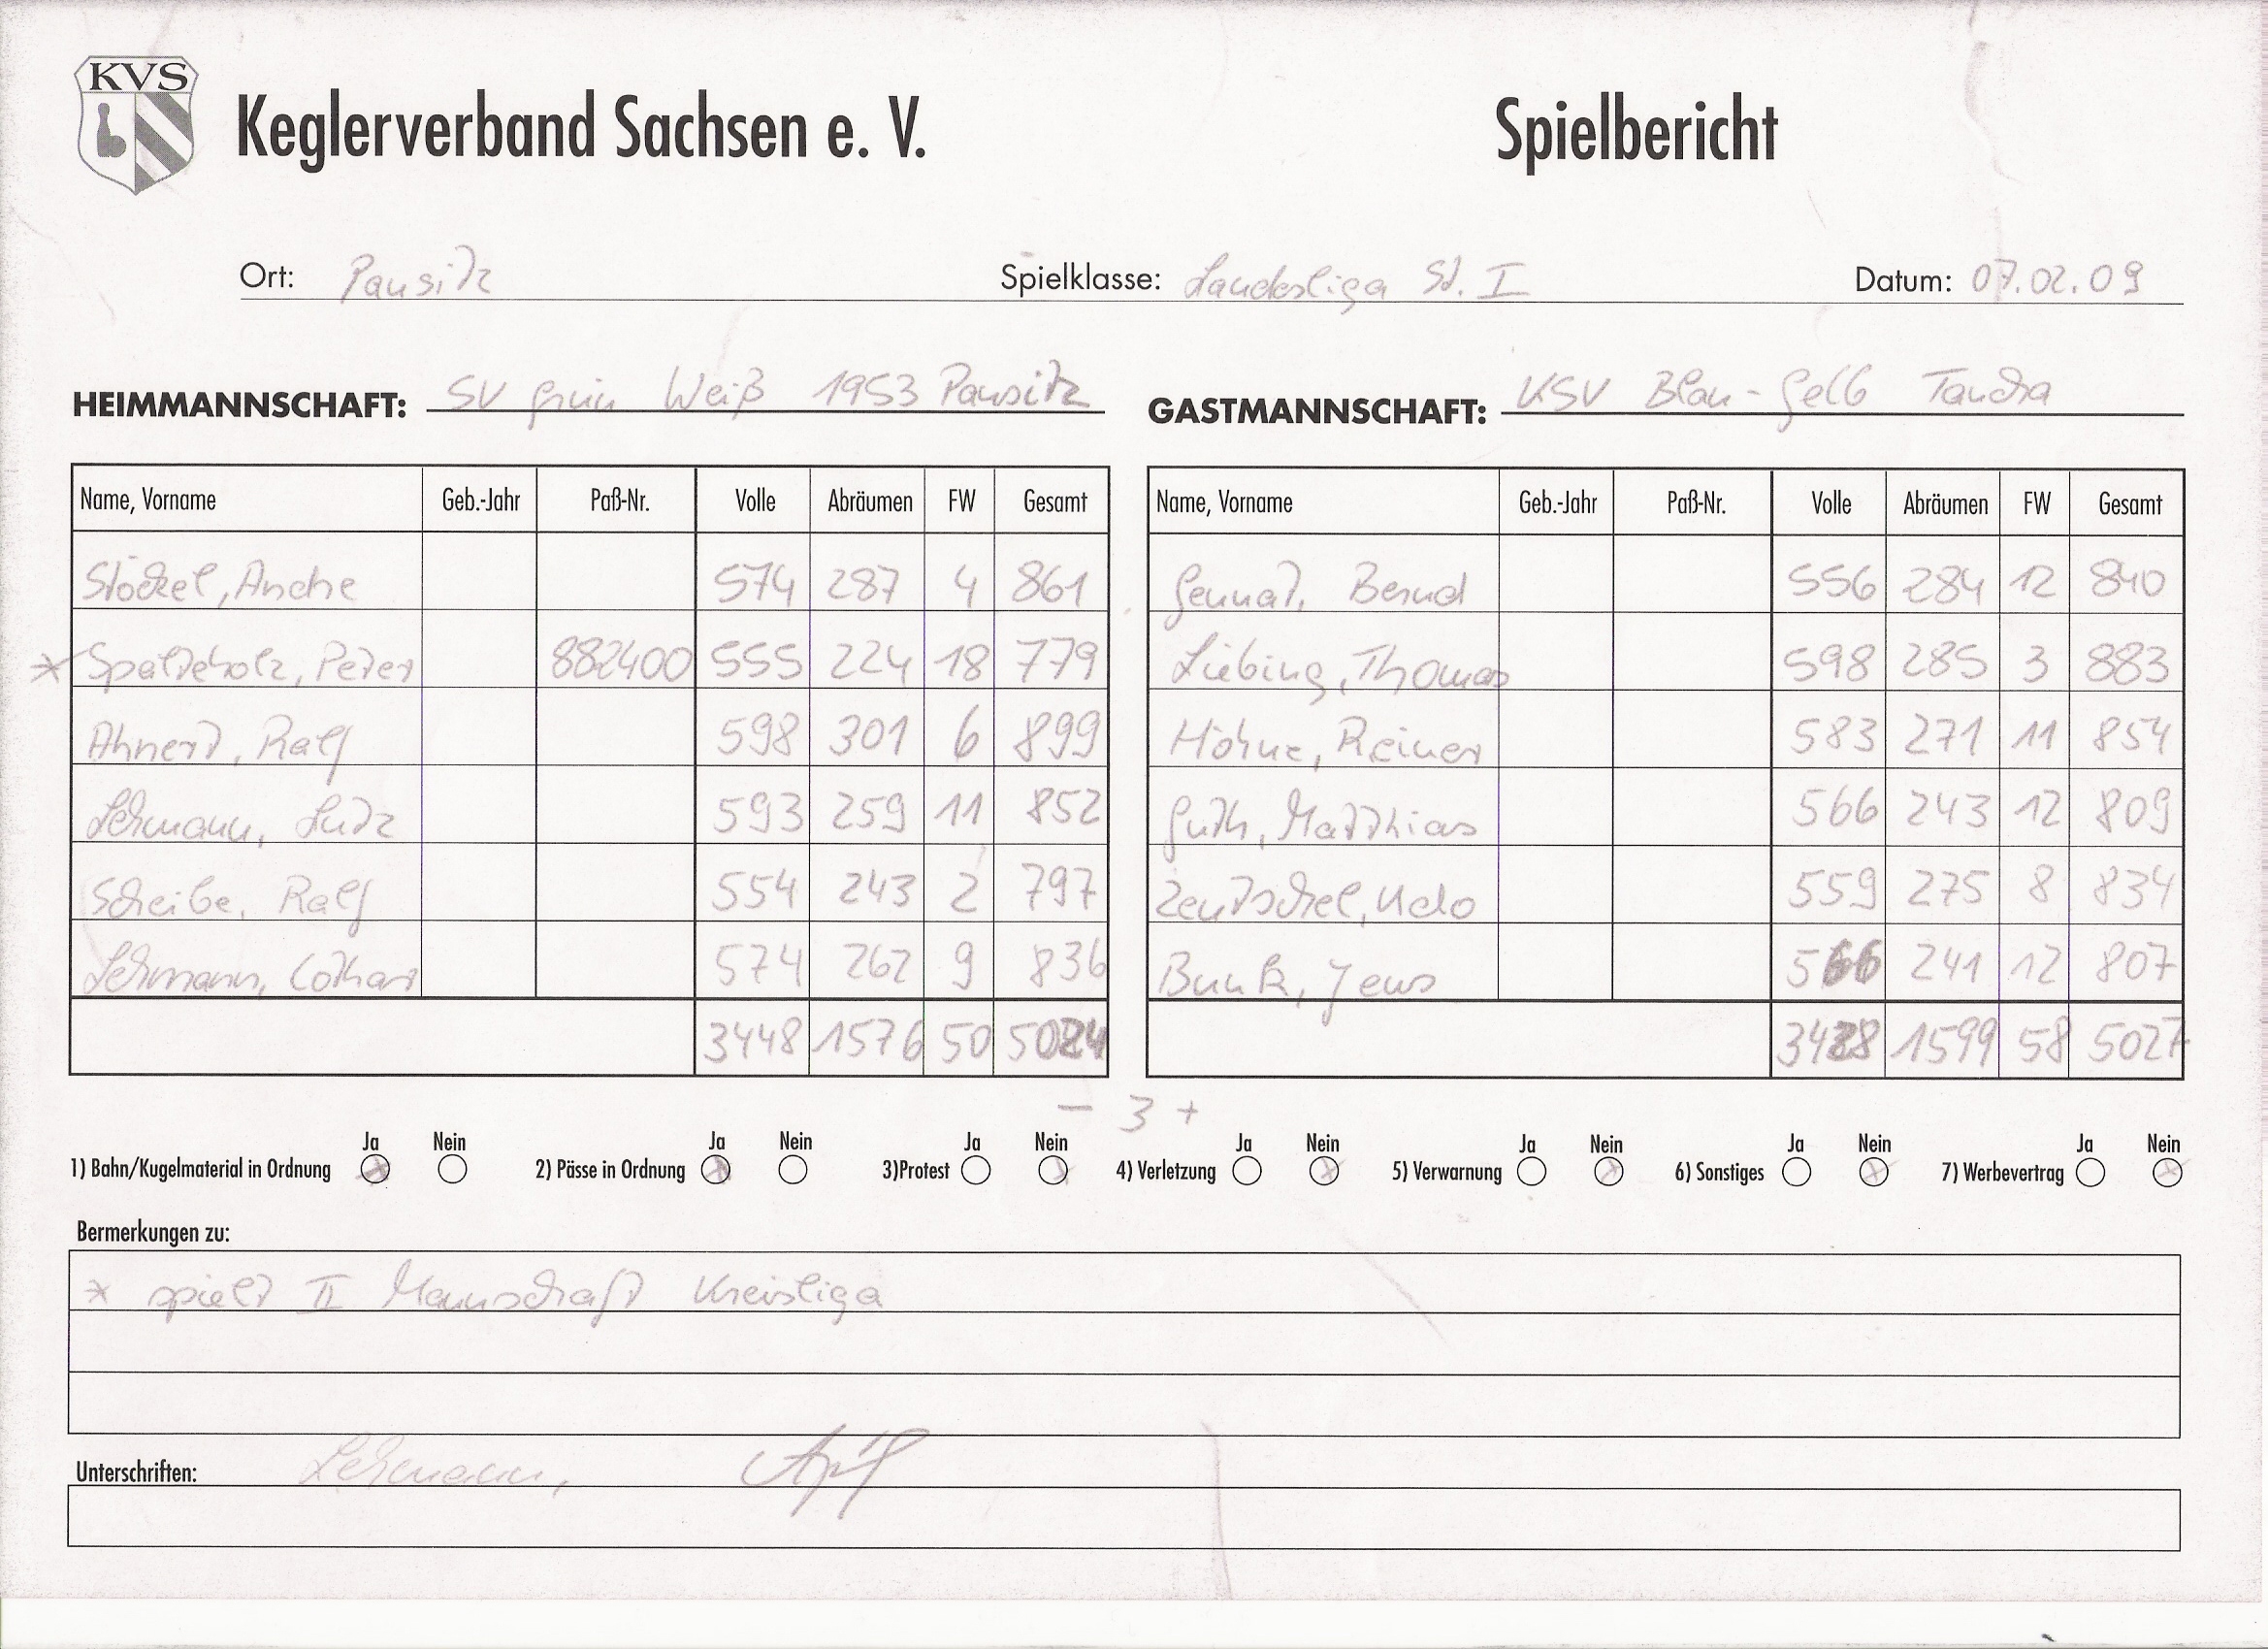 KVS
Keglerverband Sachsen e. V. Spielbericht
Ort: Pausitz Spielklasse: Landesliga St. I Datum: 07.02.09
HEIMMANNSCHAFT: SV Grün Weiß 1953 Pausitz GASTMANNSCHAFT: KSV Blau-Gelb Taucha
Name, Vorname Geb.-Jahr Paß-Nr. Volle Abräumen FW Gesamt Name, Vorname Geb.-Jahr Paß-Nr. Volle Abräumen FW Gesamt
Stöckel, Andre 574 287 4 861 Gennat, Bernd 556 284 12 840
* Spalteholz, Peter 882400 555 224 18 779 Liebing, Thomas 598 285 3 883
Ahnert, Ralf 598 301 6 899 Höhne, Reiner 583 271 11 854
Lehmann, Lutz 593 259 11 852 Guth, Matthias 566 243 12 809
Scheibe, Ralf 554 243 2 797 Zentschel, Udo 559 275 8 834
Lehmann, Lothar 574 262 9 836 Bunk, Jens 566 241 12 807
3448 1576 50 5024 3428 1599 58 5027
- 3 +
Ja Nein Ja Nein Ja Nein Ja Nein Ja Nein Ja Nein Ja Nein
1) Bahn/Kugelmaterial in Ordnung 2) Pässe in Ordnung 3)Protest 4) Verletzung 5) Verwarnung 6) Sonstiges 7) Werbevertrag
Bermerkungen zu:
* spielt II Mannschaft Kreisliga
Unterschriften: Lehmann,